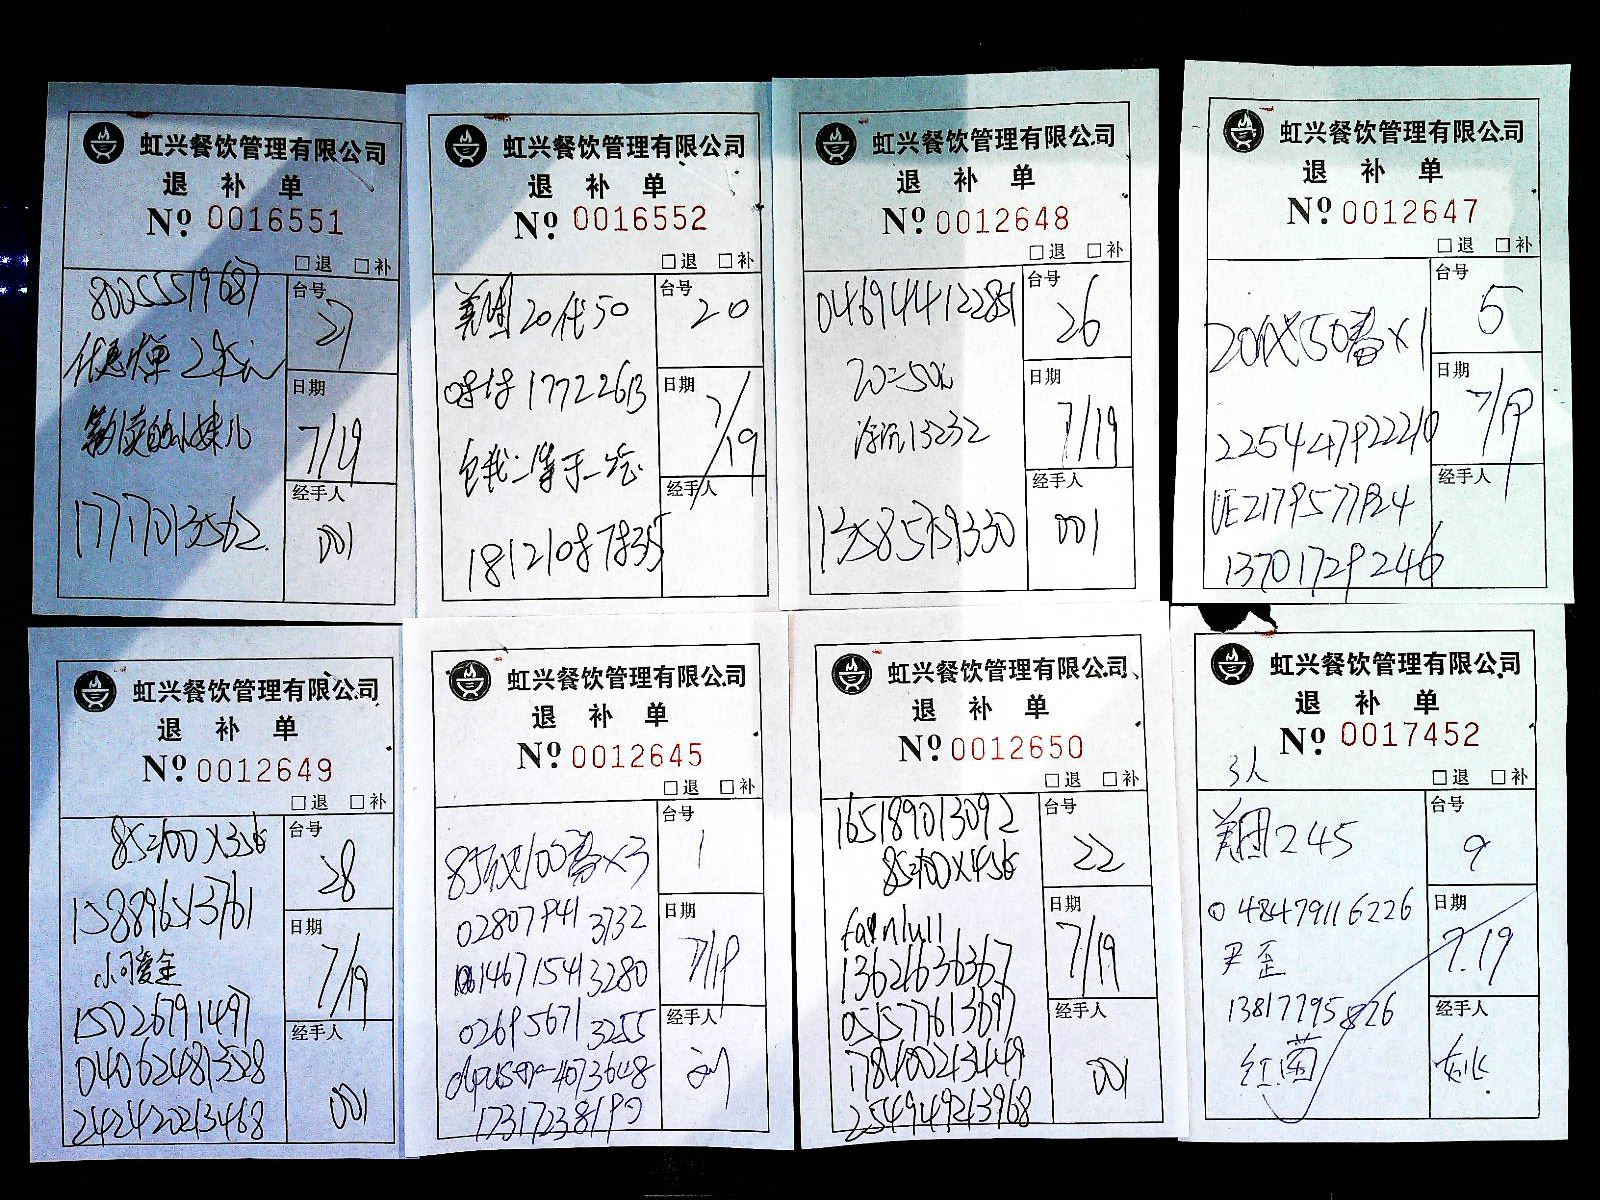 虹兴餐饮管理有限公司
退 补 单
Nº 0016551
□退 □补
台号
27
日期
7/19
经手人
001
800555519687
17717013562
虹兴餐饮管理有限公司
退 补 单
Nº 0016552
□退 □补
美团20代50
台号
20
17722613
日期
7/19
经手人
18121087835
虹兴餐饮管理有限公司
退 补 单
Nº 0012648
□退 □补
046944122851
台号
26
20=50
日期
7/19
13232
经手人
001
虹兴餐饮管理有限公司
退 补 单
Nº 0012647
□退 □补
台号
5
20代50券×1
日期
7/19
225447922210
经手人
13701729246
虹兴餐饮管理有限公司
退 补 单
Nº 0012649
□退 □补
85=100×3
台号
28
158896513761
小可爱金
日期
7/19
15026791497
经手人
040624813528
001
242420213468
虹兴餐饮管理有限公司
退 补 单
Nº 0012645
□退 □补
台号
1
85代100券×3
028079413732
日期
7/19
146715413280
026956713255
经手人
17317238190
虹兴餐饮管理有限公司
退 补 单
Nº 0012650
□退 □补
165189013092
台号
22
85=100×4
日期
7/19
13626636367
051577613697
经手人
178400213449
001
254949213968
虹兴餐饮管理有限公司
退 补 单
Nº 0017452
3人
□退 □补
美团245
台号
9
048479116226
日期
7.19
尹歪
13817795826
经手人
姚
红菌